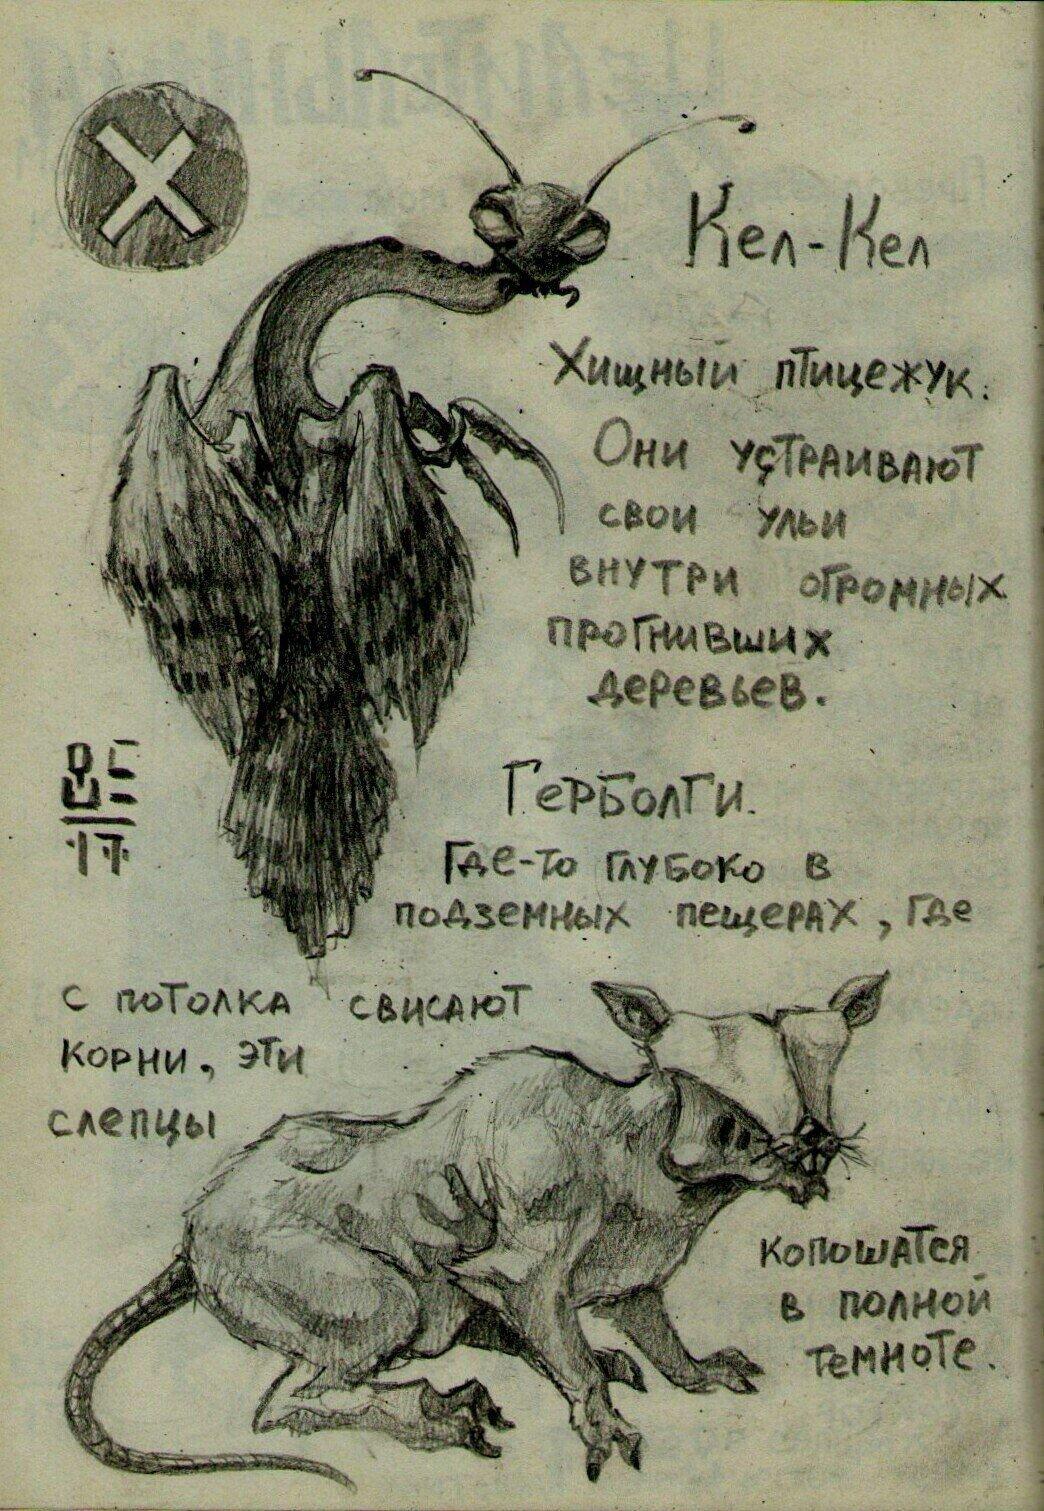 Кел-Кел
Хищный птицежук.
Они устраивают
свои ульи
внутри огромных
прогнивших
деревьев.
Герболги.
Где-то глубоко в
подземных пещерах, где
с потолка свисают
корни, эти
слепцы
копошатся
в полной
темноте.
17